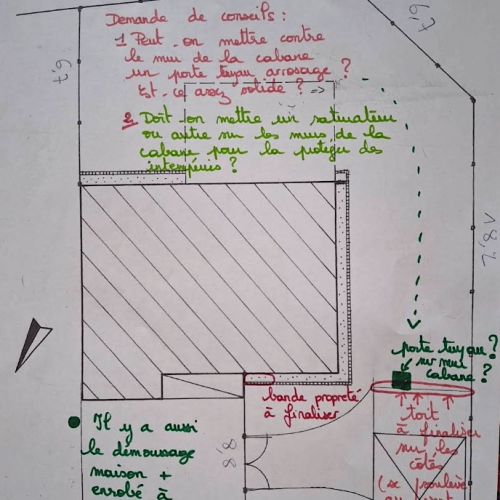 Demande de conseils :
1 Peut-on mettre contre
le mur de la cabane
un porte tuyau arrosage ?
Est-ce assez solide ?
2 Doit-on mettre un saturateur
ou autre sur les murs de la
cabane pour la protéger des
intempéries ?
6,7
6,7
18,2
porte tuyau ?
sur mur
cabane ?
bande propreté
à finaliser
toit
à finaliser
sur les
côtés
(se soulève
8,8
Il y a aussi
le démoussage
maison +
enrobé à